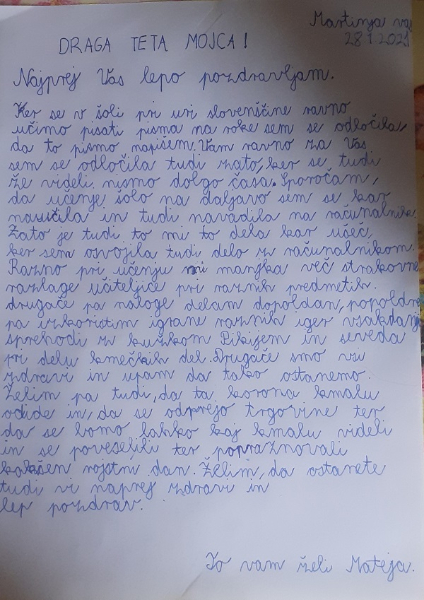 Martinja vas
28.1.2021
DRAGA TETA MOJCA!
Najprej Vas lepo pozdravljam.
Ker se v šoli pri uri slovenščine ravno
učimo pisati pisma na roke sem se odločila,
da to pismo napišem. Vam ravno za Vas
sem se odločila tudi zato, ker se tudi
že videli nismo dolgo časa. Sporočam,
da učenje, šolo na daljavo sem se kar
naučila in tudi navadila na računalnik.
Zato je tudi to mi to dela kar všeč,
ker sem osvojila tudi delo z računalnikom.
Razno pri učenju mi manjka več strokovne
razlage učiteljice pri raznih predmetih.
drugače pa naloge delam dopoldan, popoldne
pa izkoristim igrane raznih iger vsakdanji
sprehodi z kužkom Pikijem in seveda
pri delu kmečkih del. Drugače smo vsi
zdravi in upam da tako ostanemo.
Želim pa tudi, da ta korona kmalu
odide in, da se odprejo trgovine ter
da se bomo lahko kaj kmalu videli
in se poveselili ter popraznovali
kakšen rojstni dan. Želim, da ostanete
tudi vi naprej zdravi in
lep pozdrav.
To vam želi Mateja.